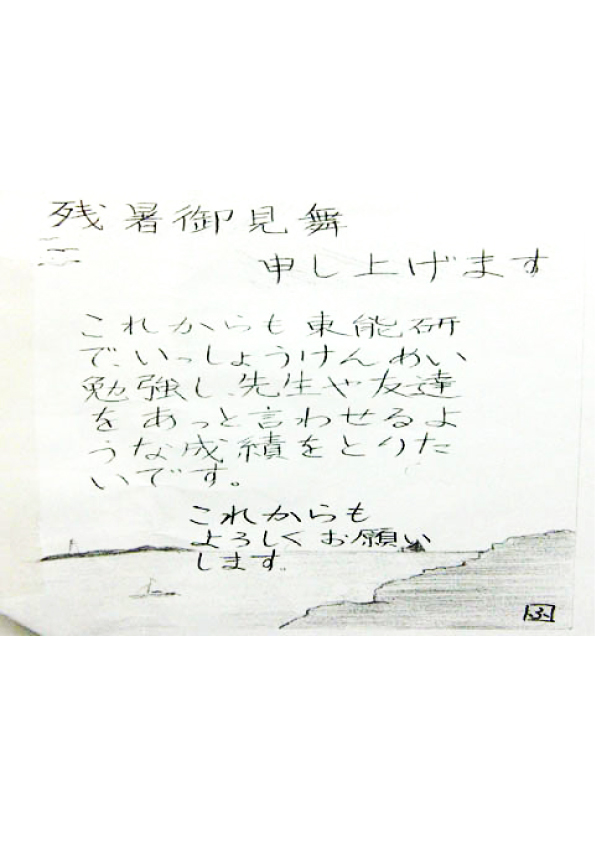 残暑御見舞
申し上げます
これからも東能研
で、いっしょうけんめい
勉強し、先生や友達
をあっと言わせるよ
うな成績をとりた
いです。
これからも
よろしくお願い
します。
ふ